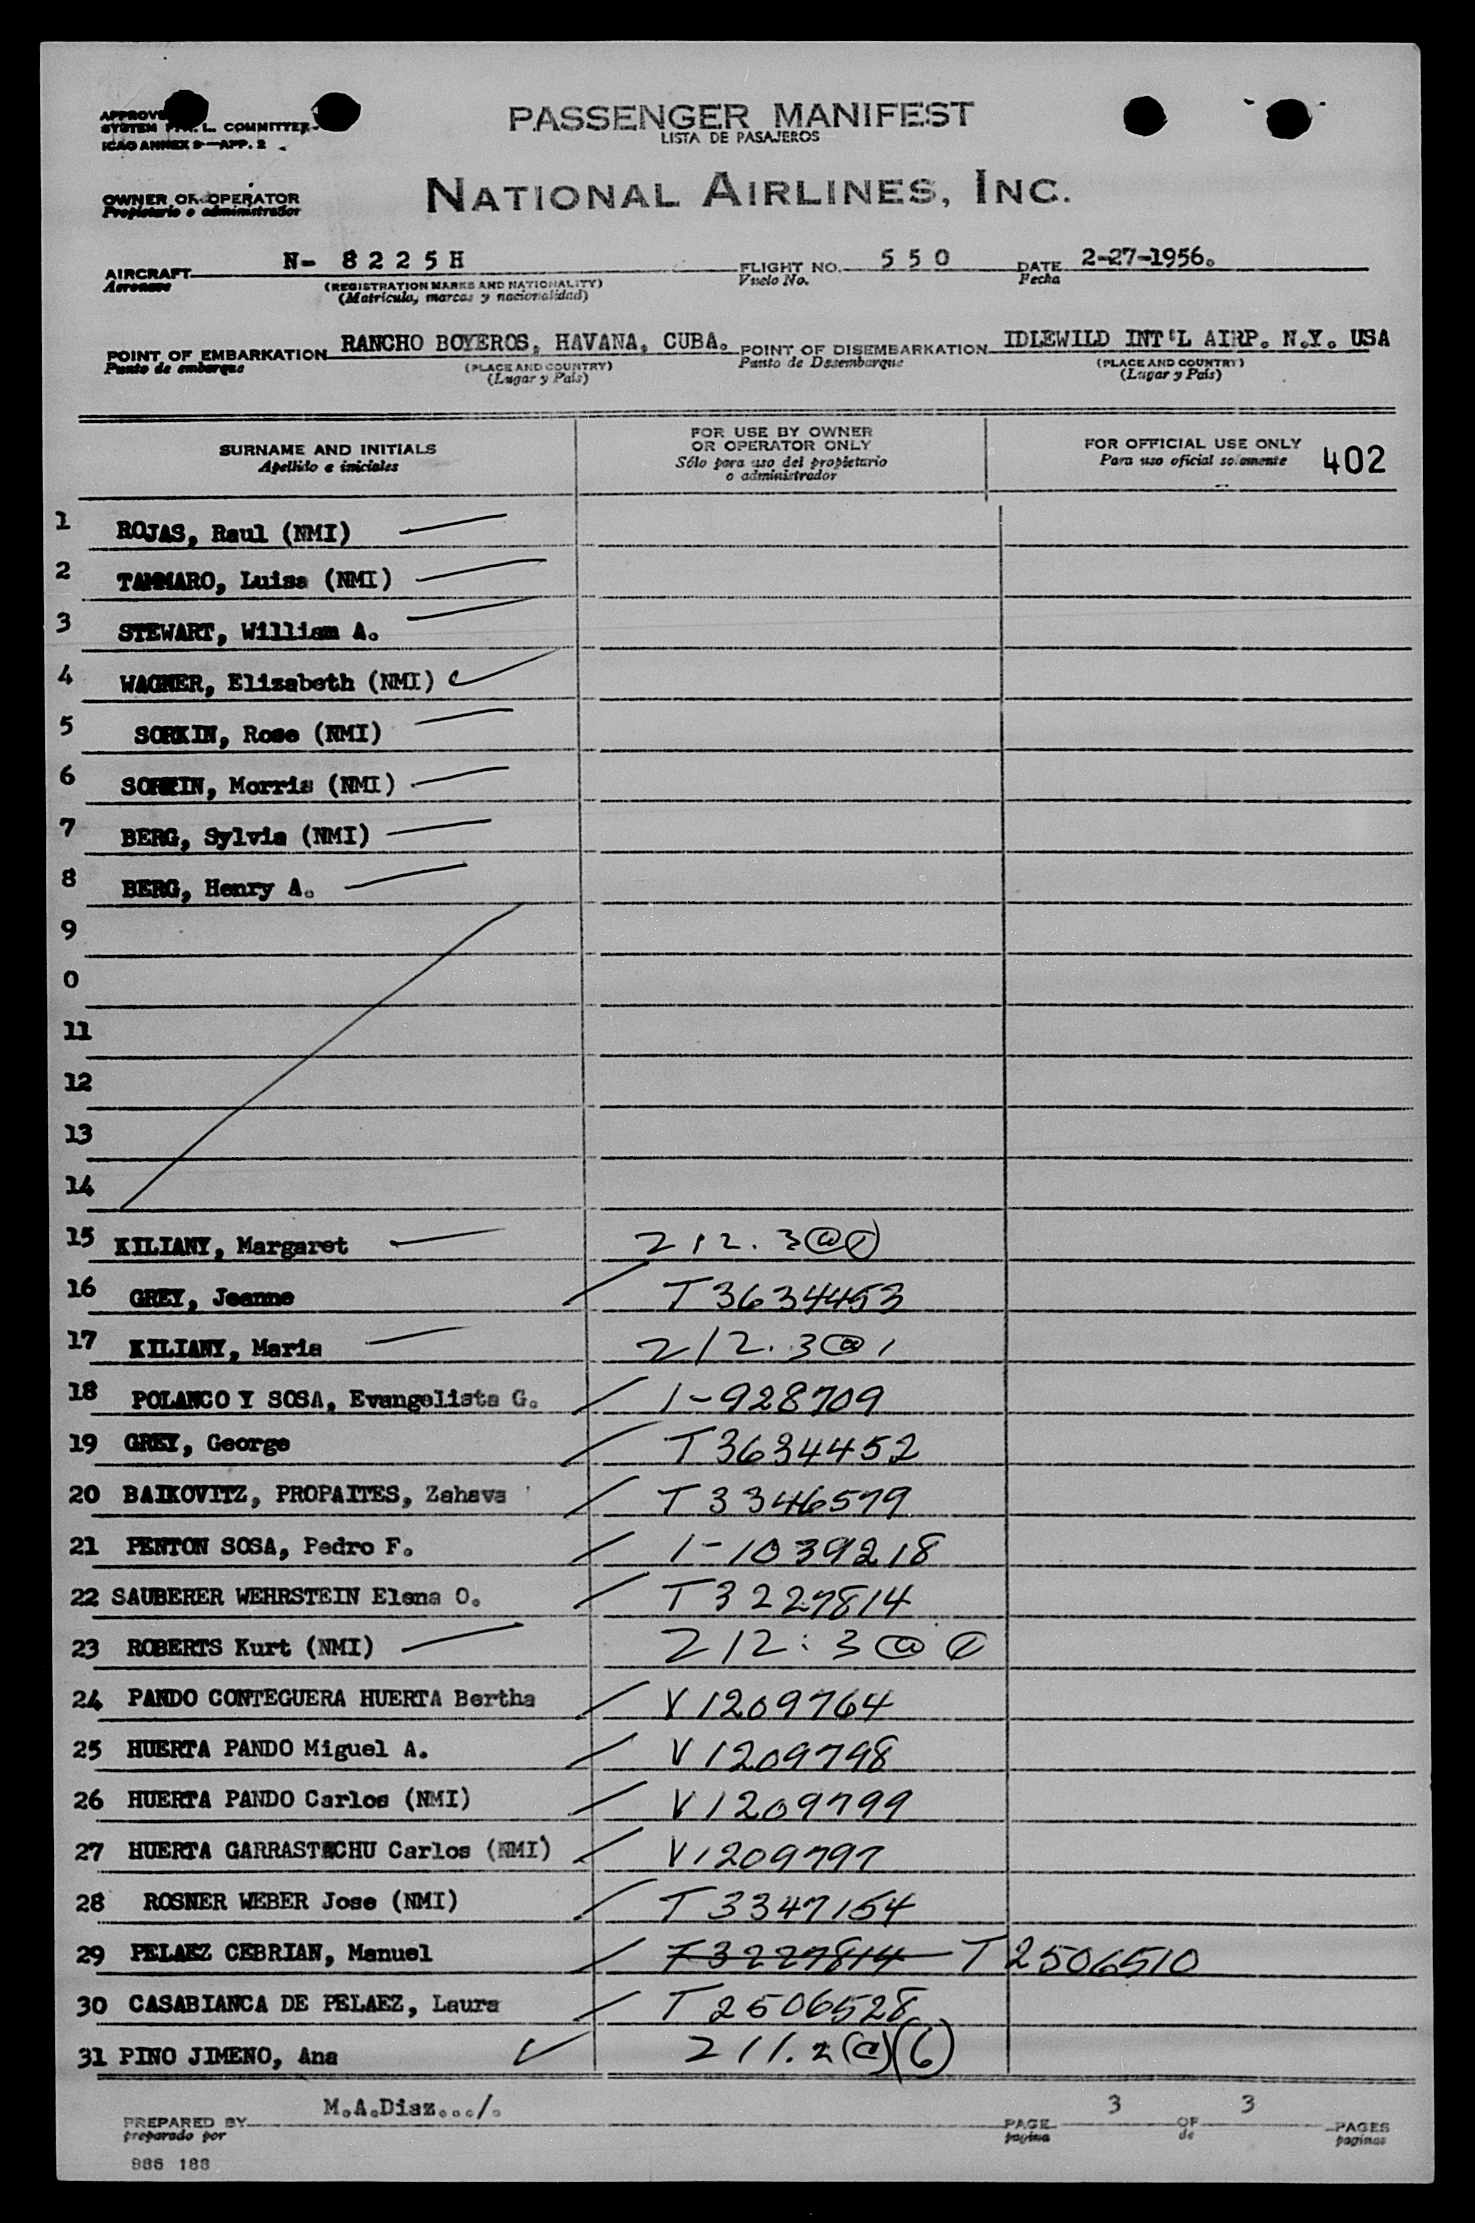 PASSENGER MANIFEST
LISTA DE PASAJEROS
SYSTEM L. COMMITTEE
ICAO ANNEX 9—APP. 2
OWNER OR OPERATOR
Propietario o administrador
NATIONAL AIRLINES, INC.
AIRCRAFT N- 8 2 2 5 H FLIGHT NO. 5 5 0 DATE 2-27-1956.
Aeronave (REGISTRATION MARKS AND NATIONALITY) Vuelo No. Fecha
(Matrícula, marcas y nacionalidad)
POINT OF EMBARKATION RANCHO BOYEROS, HAVANA, CUBA. POINT OF DISEMBARKATION IDLEWILD INT'L AIRP. N.Y. USA
Punto de embarque (PLACE AND COUNTRY) Punto de Desembarque (PLACE AND COUNTRY)
(Lugar y País) (Lugar y País)
SURNAME AND INITIALS
Apellido e iniciales
FOR USE BY OWNER
OR OPERATOR ONLY
Sólo para uso del propietario
o administrador
FOR OFFICIAL USE ONLY
Para uso oficial solamente
402
1 ROJAS, Raul (NMI)
2 TAMMARO, Luisa (NMI)
3 STEWART, William A.
4 WAGNER, Elizabeth (NMI)
5 SORKIN, Rose (NMI)
6 SORKIN, Morris (NMI)
7 BERG, Sylvia (NMI)
8 BERG, Henry A.
9
0
11
12
13
14
15 KILIANY, Margaret 212.3@(1)
16 GREY, Jeanne T3634453
17 KILIANY, Maria 212.3@1
18 POLANCO Y SOSA, Evangelista G. 1-928709
19 GREY, George T3634452
20 BAIKOVITZ, PROPAITES, Zahava T3346579
21 PENTON SOSA, Pedro F. 1-1039218
22 SAUBERER WEHRSTEIN Elena O. T3227814
23 ROBERTS Kurt (NMI) 212:3@(1)
24 PANDO CONTEGUERA HUERTA Bertha V1209764
25 HUERTA PANDO Miguel A. V1209798
26 HUERTA PANDO Carlos (NMI) V1209799
27 HUERTA GARRASTACHU Carlos (NMI) V1209797
28 ROSNER WEBER Jose (NMI) T3347154
29 PELAEZ CEBRIAN, Manuel T3227814 T2506510
30 CASABIANCA DE PELAEZ, Laura T2506528
31 PINO JIMENO, Ana 211.2(a)(6)
PREPARED BY M.A.Diaz.../. PAGE 3 OF 3 PAGES
preparado por pagina de paginas
986 188